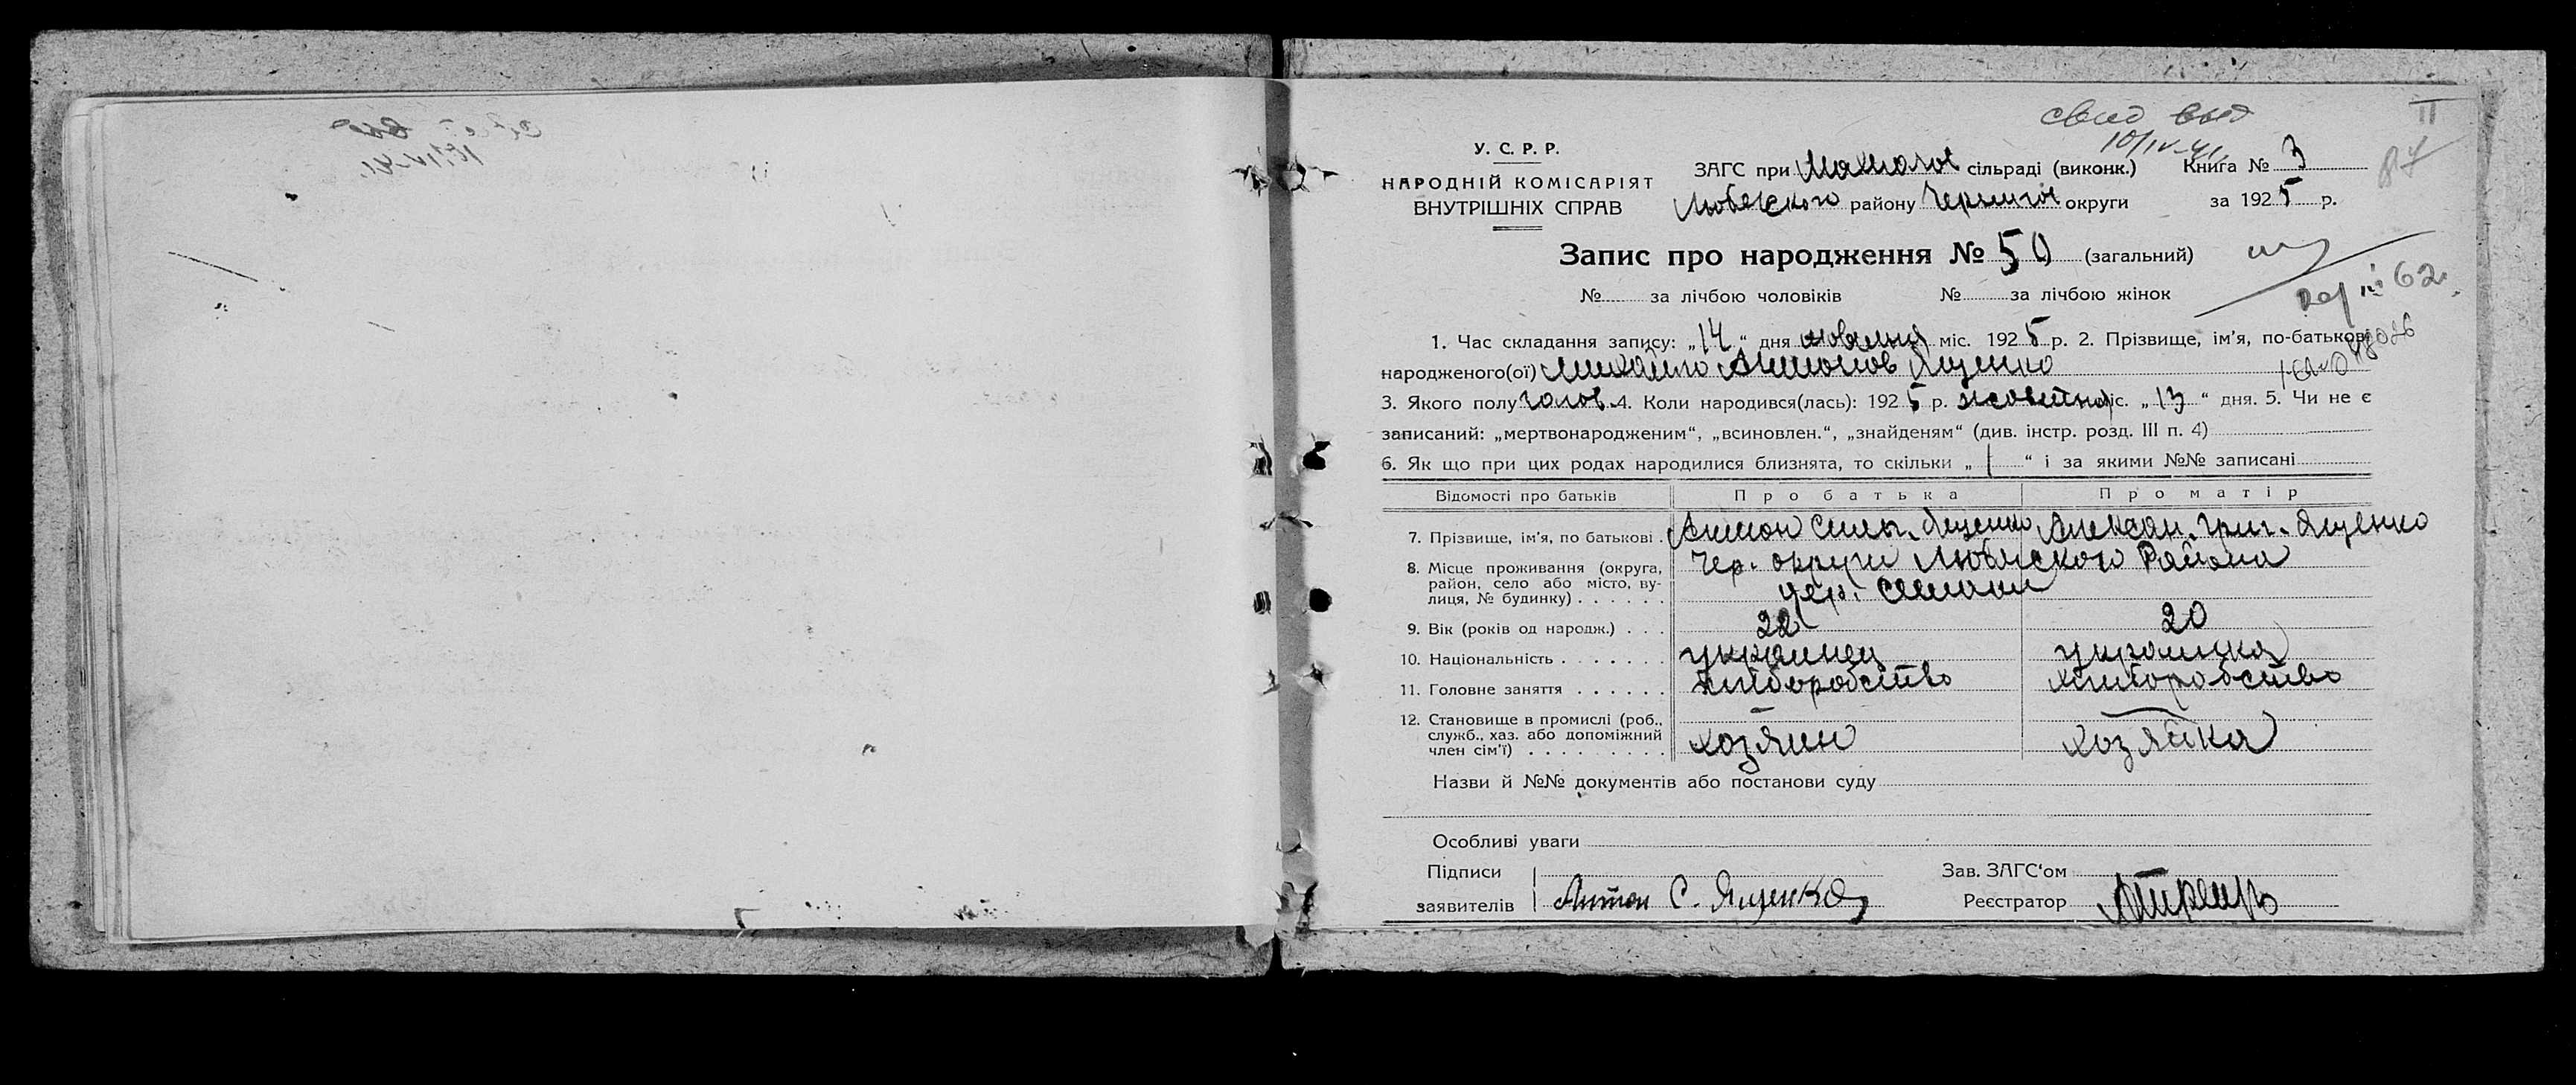 свид выд
10/IV-41.
II
87
У. С. Р. Р.
НАРОДНІЙ КОМІСАРІЯТ
ВНУТРІШНІХ СПРАВ
ЗАГС при сільраді (виконк.) Книга № 3
Любецкого району Черниг округи за 1925 р.
Запис про народження № 50 (загальний)
№ за лічбою чоловіків № за лічбою жінок
62.
1. Час складання запису: „14“ дня міс. 1925 р. 2. Прізвище, ім'я, по-батькові
народженого(ої) Михайло Антонов Ященко
3. Якого полу чолов. 4. Коли народився(лась): 1925 р. жовтня міс. „13“ дня. 5. Чи не є
записаний: „мертвонародженим“, „всиновлен.“, „знайденям“ (див. інстр. розд. III п. 4)
6. Як що при цих родах народилися близнята, то скільки „ “ і за якими №№ записані
Відомості про батьків Про батька Про матір
7. Прізвище, ім'я, по батькові . Антон Ященко Александ. Григ. Ященко
8. Місце проживання (округа, Чер. округи Любецкого Района
район, село або місто, ву-
лиця, № будинку) . . . . . . дер.
9. Вік (років од народж.) . . . 22 20
10. Національність . . . . . . . украинец украинка
11. Головне заняття . . . . . . хлиборобство хлиборобство
12. Становище в промислі (роб.,
служб., хаз. або допоміжний
член сім'ї) . . . . . . . . . хозяин хозяйка
Назви й №№ документів або постанови суду
Особливі уваги
Підписи Зав. ЗАГС'ом
заявителів Антон С. Ященко Реєстратор